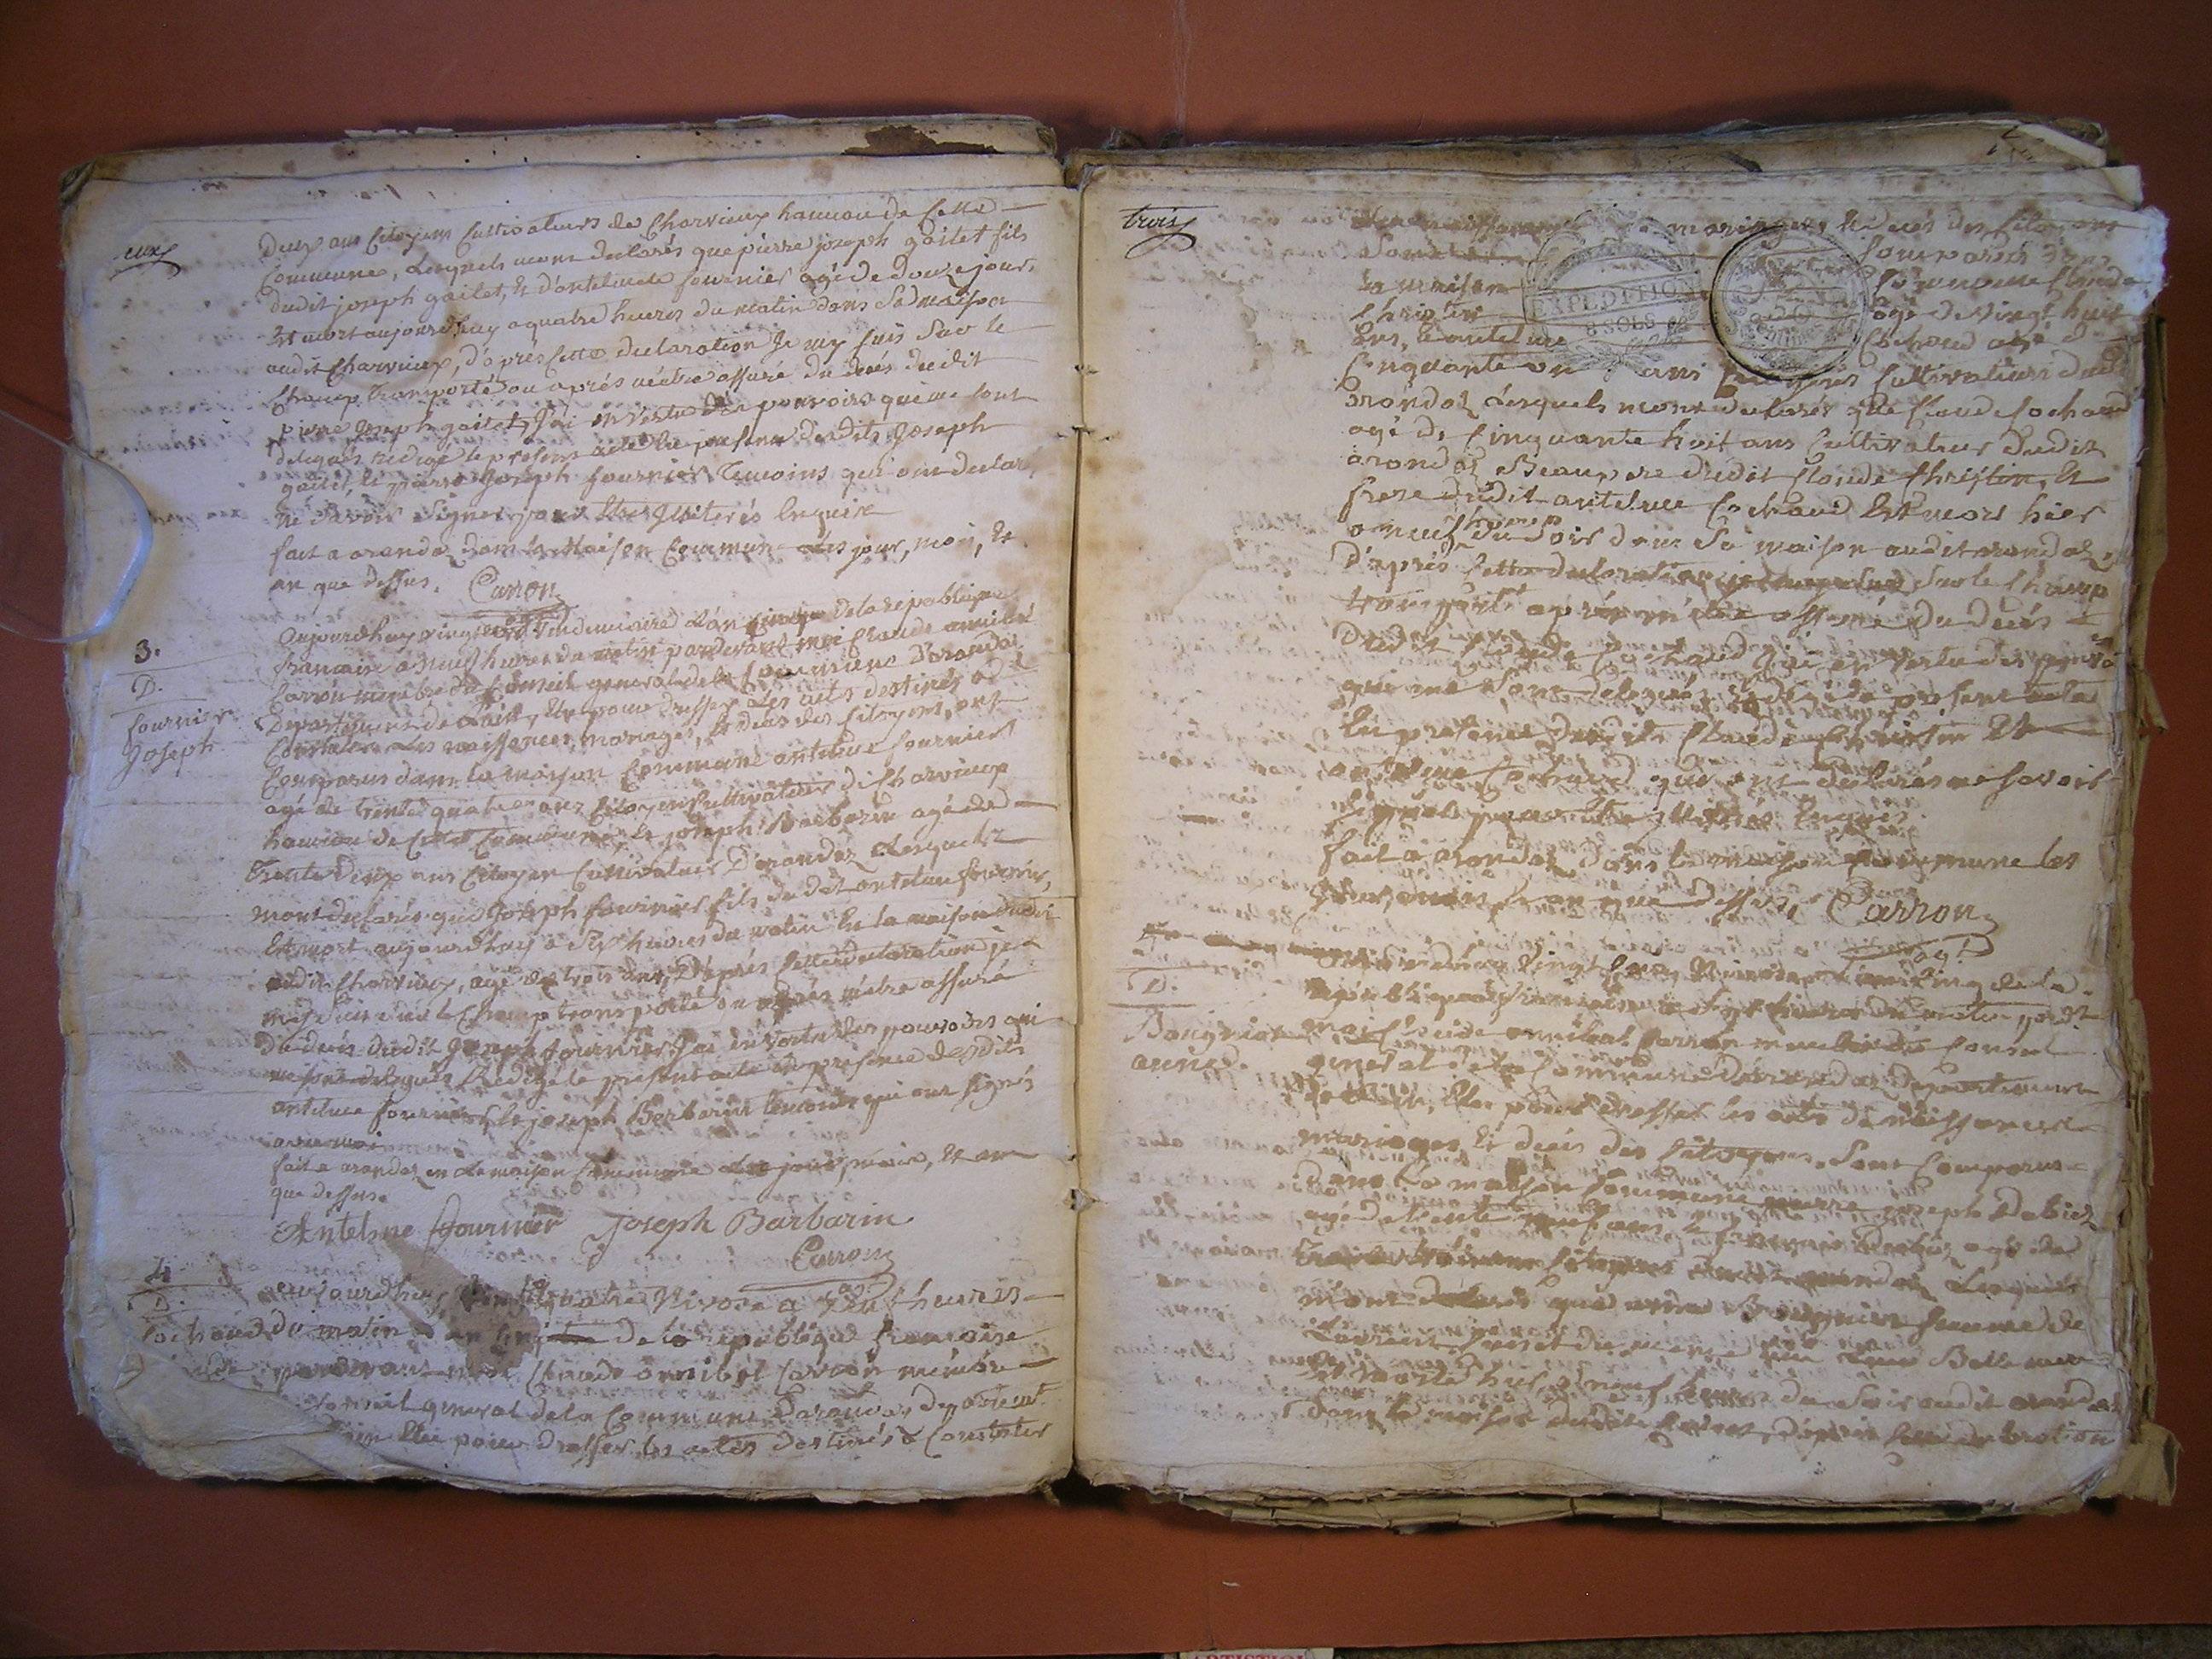 eux
Deux ans Citoyens Cultivateurs de Charvieux hameau de Cette
Commune, Lesquels mont declarés que pierre joseph gaitet fils
dudit joseph gaitet, & d'antelmete fournier agé de douze jours
Est mort aujourdhuy a quatre heures du matin dans Sa maison
audit Charvieux, d'après Cette declaration Je my suis Sur le
Champ transporté ou après mêtre assuré du decés dudit
pierre joseph gaitet, J'ai En Vertu des pouvoirs qui me sont
delegués redigé le present acte En presence desdits Joseph
gaitet, & pierre Joseph fournier Temoins qui ont declaré
ne Savoir Signer pour Etre Illiterés Enquis
fait a arandaz dans la Maison Commune Les jour, mois, &
an que dessus. Carron
3.
D.
fournier
Joseph
Aujourdhuy vingt Vendemiaire L'an Cinq de la republique
francaise a neuf heures du matin pardevant moi Claude annibal
Carron membre du Conseil general de la Commune D'arandaz
Departement de L'ain, Elu pour dresser Les actes destinés a
Constater Les naissances, mariages, & deces des Citoyens, ont
Comparus dans la maison Commune antelme fournier
agé de trente quatre ans Citoyen Cultivateur de Charvieux
hameau de Cette Commune, & joseph Barbarin agé de
Trente Deux ans Citoyen Cultivateur D'arandaz Lesquels
mont declarés que Joseph fournier fils dudit antelme fournier,
Est mort aujourdhuy a Six heures du matin En la maison
audit Charvieux, agé de trois ans, D'après Cette declaration je
my suis Sur le Champ transporté ou après mêtre assuré
du decés dudit Joseph fournier J'ai En Vertu des pouvoirs qui
me sont delegués Redigé le present acte En presence desdits
antelme fournier, & joseph Barbarin temoins qui ont Signés
avec moi
fait a arandaz En La maison Commune Les jour, mois, & an
que dessus.
Antelme fournier Joseph Barbarin
Carron
4
D.
Cochaud
aujourdhuy Vingt quatre Nivose a heures
du matin an Cinq de la republique francaise
pardevant moi Claude annibal Carron membre
Conseil general de la Commune D'arandaz departemt.
Elu pour dresser les actes destinés a Constater
trois
mariages, & deces des Citoyens
Sont Comparus dans
La maison Commune Claude
Christin agé de Vingt huit
ans, & antelme Cochaud agé de
Cinquante un ans Cultivateurs dudit
arandaz Lesquels mont declarés que Claude Cochaud
agé de Cinquante huit ans Cultivateur dudit
arandaz Beaupere dudit Claude Christin, &
frere dudit antelme Cochaud Est mort hier
a neuf heures du Soir dans Sa maison audit arandaz
D'après Cette declaration Sur le Champ
transporté après mêtre assuré du decés
Dudit Claude Cochaud J'ai en Vertu des pouvoirs
qui me Sont delegués Redigé le present acte
En presence Desdits Claude Christin &
antelme Cochaud qui ont declarés ne savoir
Signer pour Etre Illiterés Enquis.
fait a arandaz Dans la maison Commune les
jour, mois, & an que dessus, Carron
D.
Bougniot
anne
Vingt Nivose an Cinq de la
Republique francaise a Sept heures du matin pardt.
moi Claude annibal Carron membre du Conseil
general de la Commune D'arandaz departement
de L'ain, Elu pour dresser les actes de naissances
mariages & decés des Citoyens. Sont Comparus
Dans La maison Commune pierre joseph
agé de trente neuf ans, & agé de
Citoyens dudit arandaz Lesquels
mont declarés que anne femme de
Laurent Belle mere
Est morte hier a neuf heures du Soir audit arandaz
Dans la maison dudit d'après Cette declaration
EXPEDITION
8 SOLS